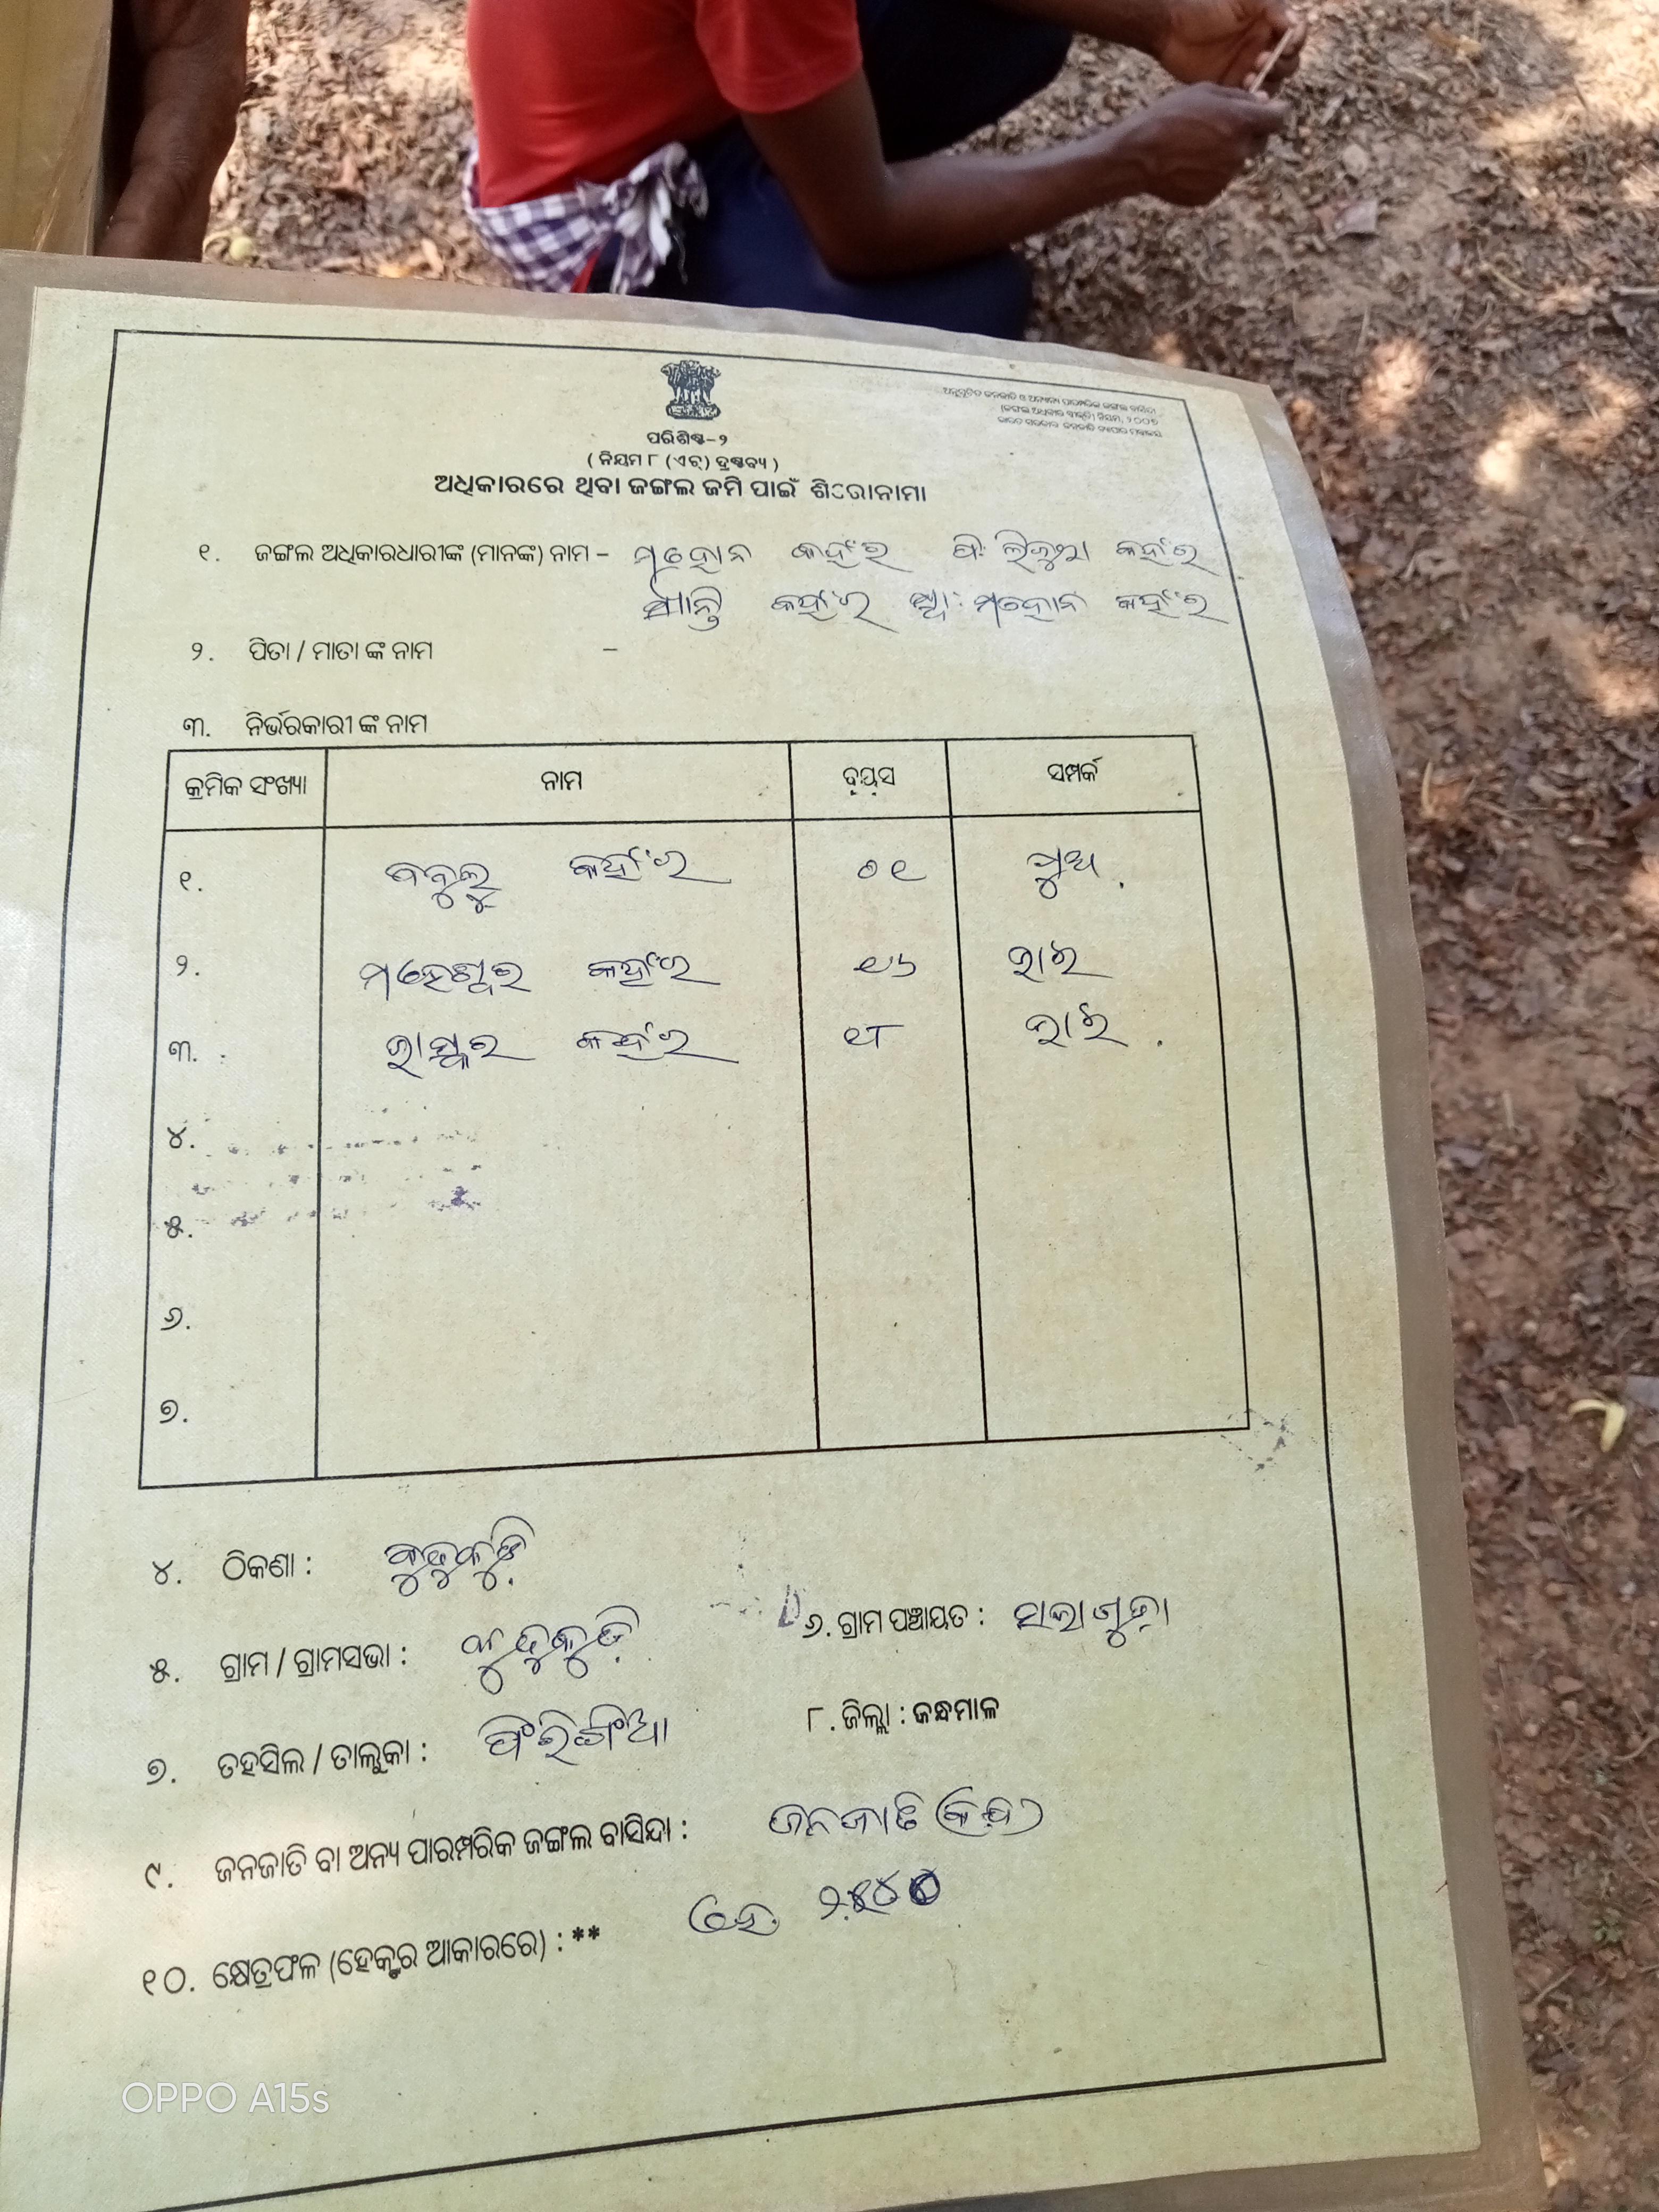 ଅନୁସୂଚିତ ଜନଜାତି ଓ ଅନ୍ୟାନ୍ୟ ପାରମ୍ପରିକ ଜଙ୍ଗଲ ବାସିନ୍ଦା
(ଜଙ୍ଗଲ ଅଧିକାର ସ୍ୱୀକୃତି) ନିୟମ, ୨୦୦୭
ପରିଶିଷ୍ଟ-୨
( ନିୟମ ୮ (ଏଚ୍) ଦ୍ରଷ୍ଟବ୍ୟ )
ଅଧିକାରରେ ଥିବା ଜଙ୍ଗଲ ଜମି ପାଇଁ ଶିରୋନାମା
୧. ଜଙ୍ଗଲ ଅଧିକାରଧାରୀଙ୍କ (ମାନଙ୍କ) ନାମ – ମହୋନ କହଁର ପି: କହଁର
ଶାନ୍ତି କହଁର ସ୍ୱା: ମହୋନ କହଁର
୨. ପିତା / ମାତା ଙ୍କ ନାମ –
୩. ନିର୍ଭରକାରୀ ଙ୍କ ନାମ
କ୍ରମିକ ସଂଖ୍ୟା ନାମ ବୟସ ସମ୍ପର୍କ
୧. ବବୁଲୁ କହଁର ୦୧ ପୁଅ
୨. ମହେଶ୍ୱର କହଁର ୧୬ ଭାଇ
୩. ଭାସ୍କର କହଁର ୧୮ ଭାଇ
୪.
୫.
୬.
୭.
୪. ଠିକଣା :
୫. ଗ୍ରାମ / ଗ୍ରାମସଭା : ୬. ଗ୍ରାମ ପଞ୍ଚାୟତ : ସାଲାଗୁଡ଼ା
୭. ତହସିଲ / ତାଲୁକା : ଫିରିଙ୍ଗିଆ ୮. ଜିଲ୍ଲା : କନ୍ଧମାଳ
୯. ଜନଜାତି ବା ଅନ୍ୟ ପାରମ୍ପରିକ ଜଙ୍ଗଲ ବାସିନ୍ଦା : ଜନଜାତି (କନ୍ଧ)
୧୦. କ୍ଷେତ୍ରଫଳ (ହେକ୍ଟର ଆକାରରେ) : ** ହେ.
OPPO A15s